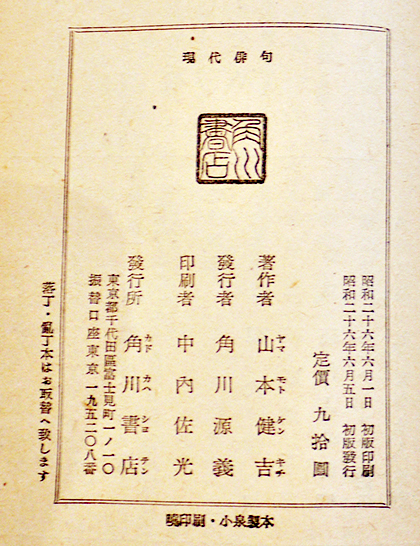 現代俳句
角川書店
昭和二十六年六月一日 初版印刷
昭和二十六年六月五日 初版發行
定價 九拾圓
著作者 山本健吉
ヤマ モト ケン キチ
發行者 角川源義
印刷者 中内佐光
發行所 角川書店
カド カハ シヨ テン
東京都千代田區富士見町一ノ一〇
振替口座東京一九五二〇八番
落丁・亂丁本はお取替へ致します
曉印刷・小泉製本